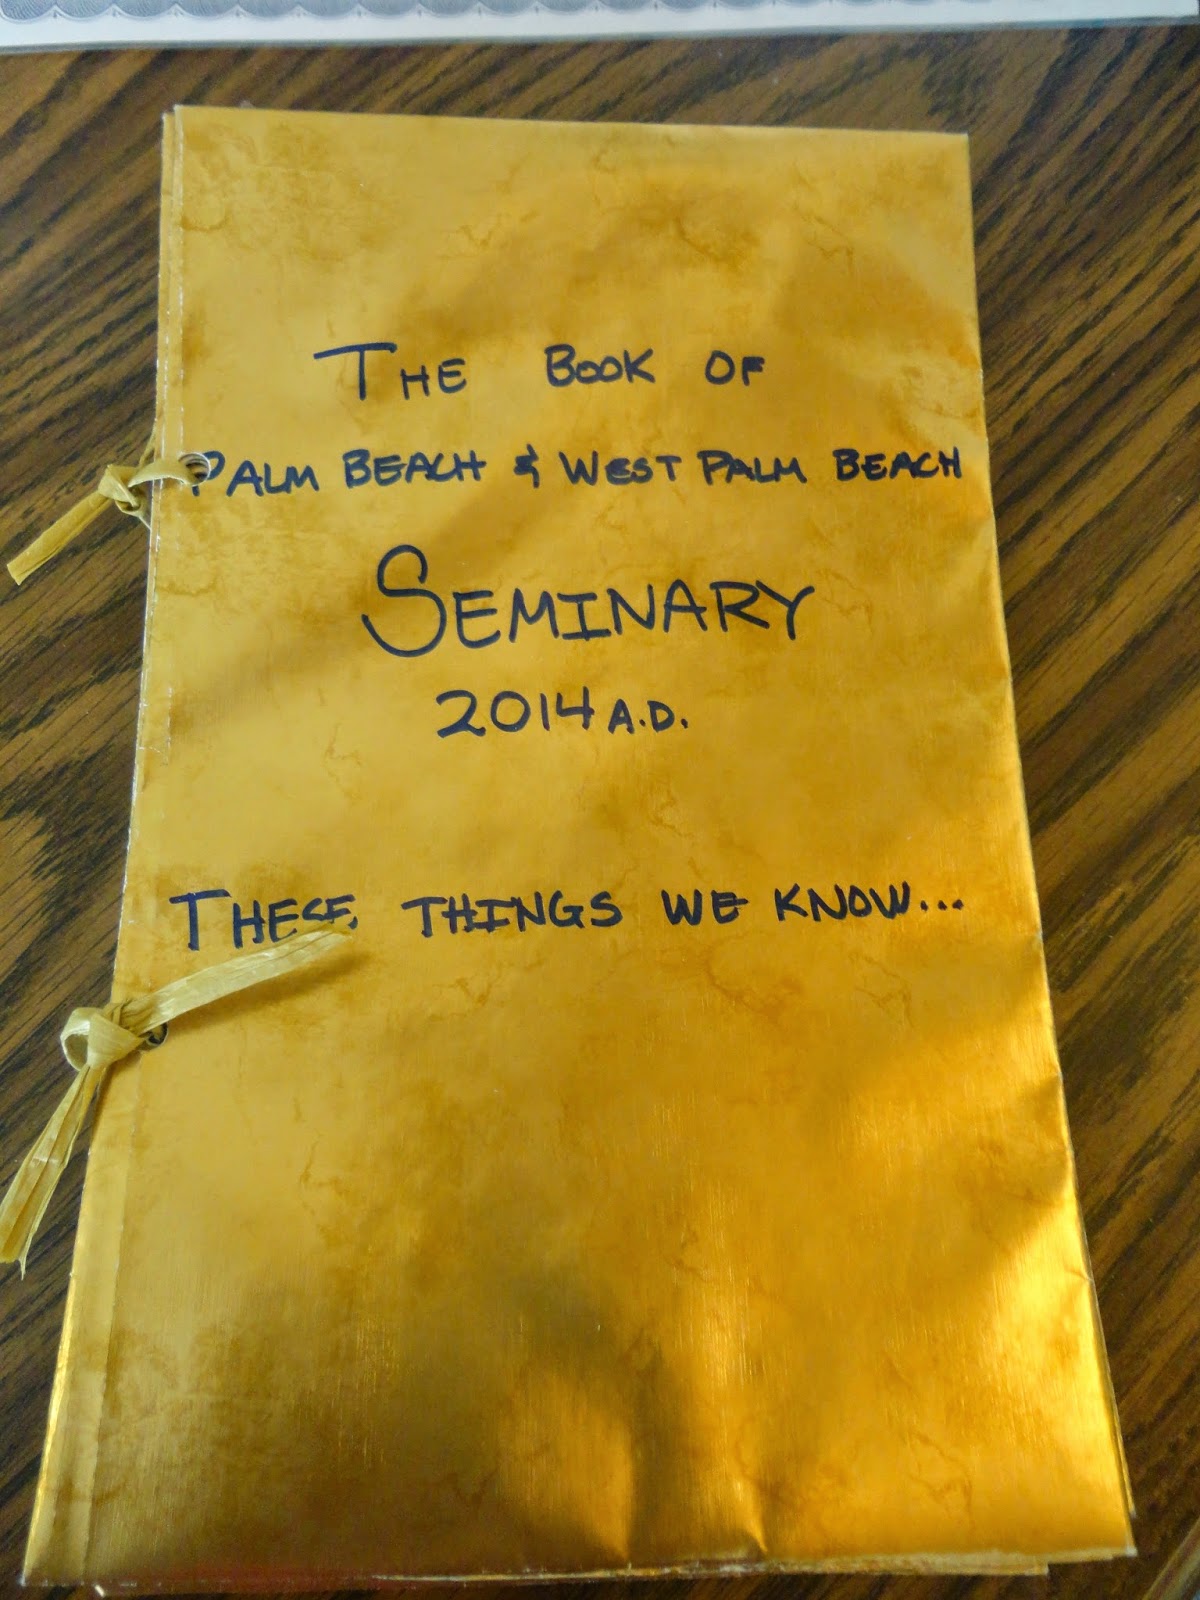 THE BOOK OF
PALM BEACH & WEST PALM BEACH
SEMINARY
2014 A.D.
THESE THINGS WE KNOW...